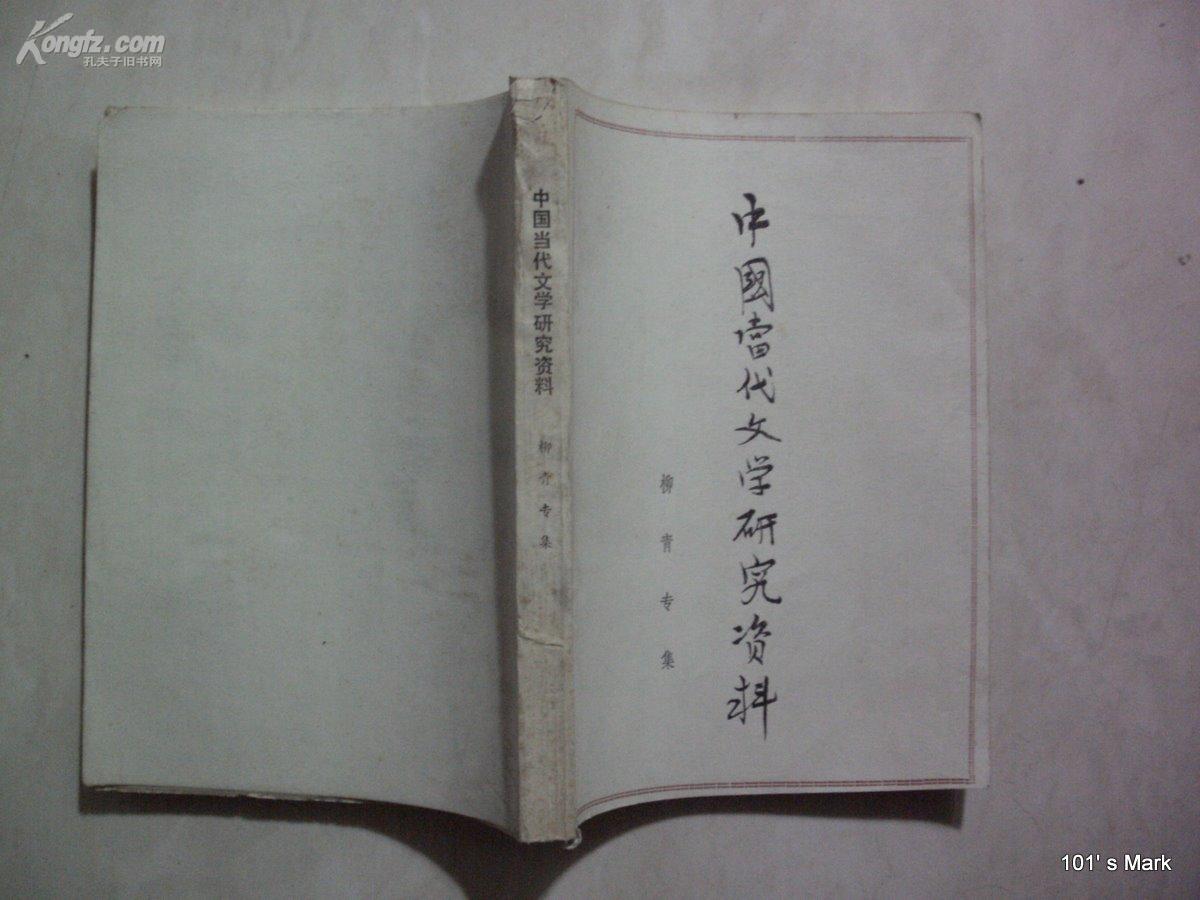 Kongfz.com
孔夫子旧书网
中国当代文学研究资料
柳青专集
中國當代文学研究资料
柳青专集
101' s Mark